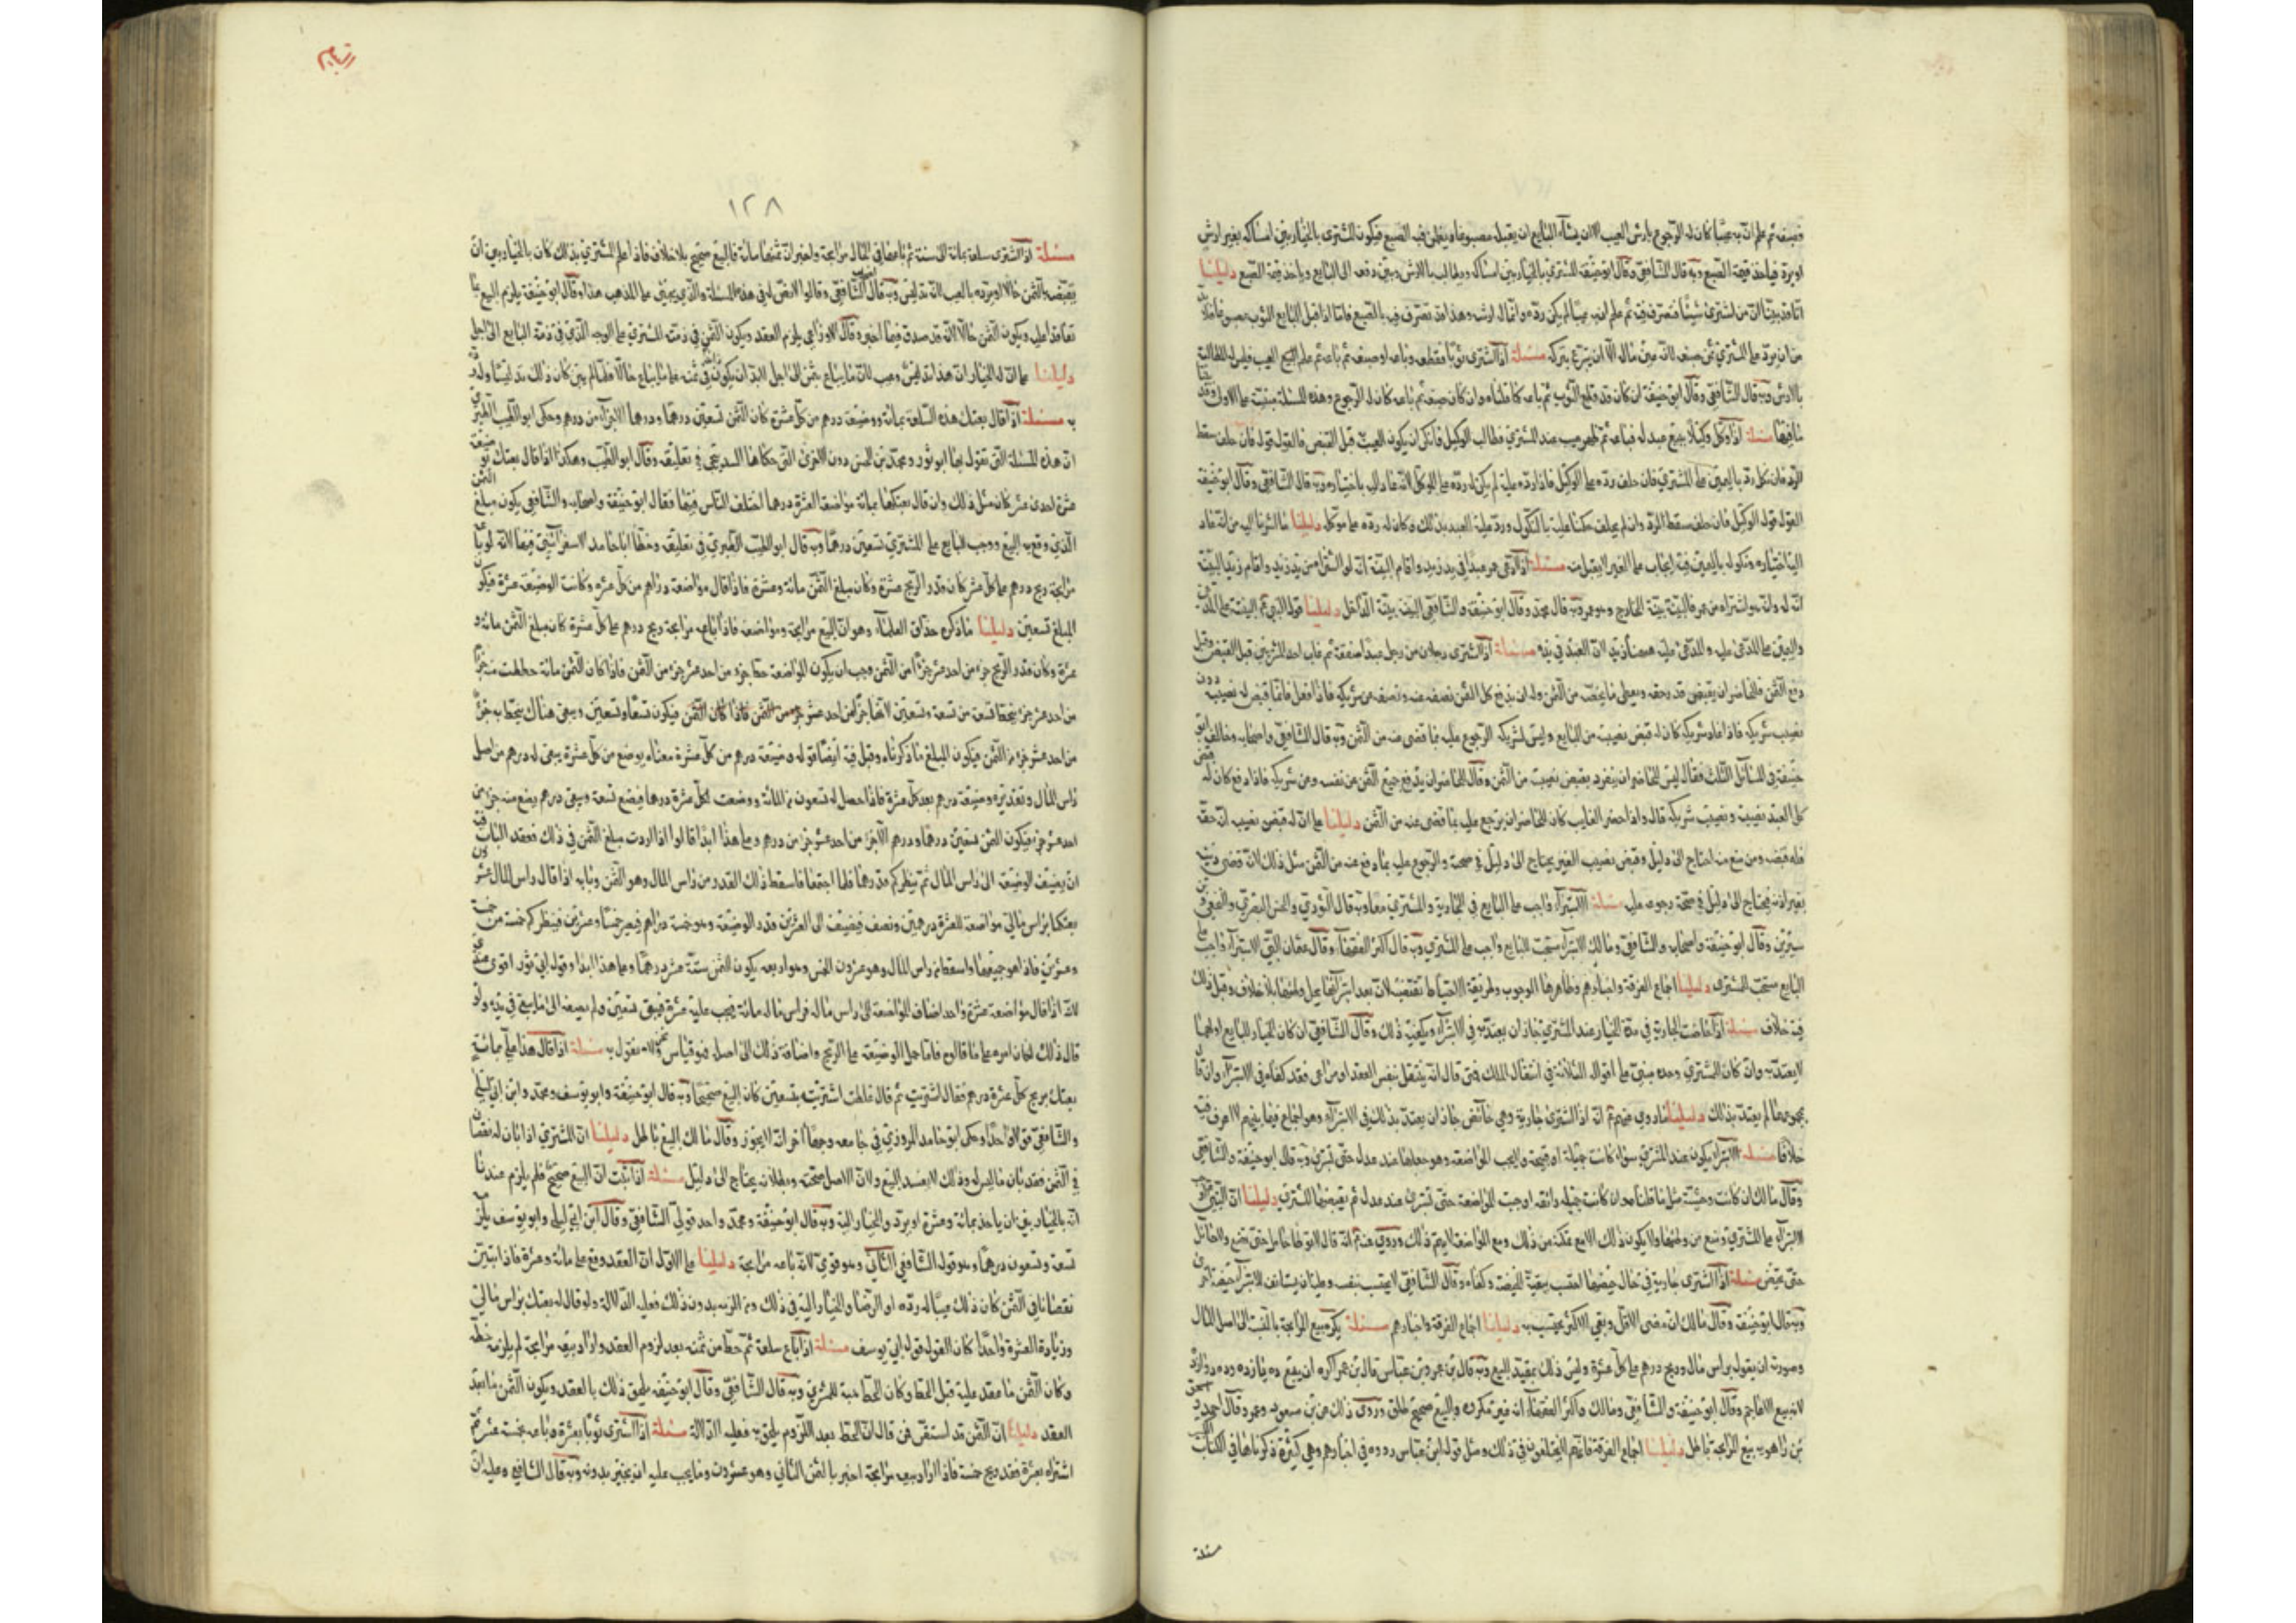 وصبغه ثم علم انّ به عيبًا كان له الرّجوع بارش العيب الا ان يشآء البايع ان يقبله مصبوغا ويعطى قيمة الصبغ فيكون المشترى بالخيار بين امساكه بغير ارش
او يردّه فياخذ قيمة الصّبغ وبه قال الشّافعى وقال ابو حنيفة المشترى بالخيار بين امساكه ويطالب بالارش وبين دفعه الى البايع وياخذ قيمة الصّبغ دليلنا
من ان يردّ على المشترى ثمن صبغه لانّه عين ماله الّا ان يتبرّع بتركه مسئلة اذا اشترى ثوبًا فقطعه وباعه او صبغه ثم باعه ثم علم بالعيب فليس له المطالبة
بالارش وبه قال الشّافعى وقال ابو حنيفة ان كان قد قطع الثّوب ثم باعه كما قلناه وان كان صبغه ثم باعه كان له الرّجوع وهذه المسئلة مبنيّة على الاولى وقد
مسئلة اذا وكّل وكيلًا ببيع عبد له فباعه ثم ظهر به عيب عند المشترى فطالب الوكيل فانكر ان يكون العيب قبل القبض فالقول قوله فان حلف سقط
الردّ فان نكل ردّ باليمين على المشترى فان حلف ردّه على الوكيل فاذا ردّه عليه لم يكن له ردّه على الموكّل لانّه عاد اليه باختياره وبه قال الشّافعى وقال ابو حنيفة
القول قول الوكيل فان حلف سقط الردّ وان لم يحلف حكمنا عليه بالنّكول وردّ عليه العبد بذلك وكان له ردّه على موكّله دليلنا ما اشرنا اليه من انّه عاد
اليه باختياره ونكوله باليمين فيه ايجاب على الغير لا يقبل منه مسئلة
انّه له وانّه اشتراه من عمرو فالبيّنة بيّنة الخارج وهو عمرو وبه قال محمّد وقال ابو حنيفة والشّافعى البيّنة بيّنة الدّاخل دليلنا قوله البيّنة على المدّعى
واليمين على المدّعى عليه والمدّعى عليه ههنا زيد لانّ العبد في يده مسئلة اذا اشترى رجلان من رجل عبدًا صفقة ثم غاب احد المشتريين قبل القبض وقبل
دفع الثّمن فللحاضر ان يقبض قدر حقّه ويعطى ما يخصّه من الثّمن وله ان يدفع كلّ الثّمن نصفه عنه ونصفه عن شريكه فاذا فعل فانّما قبض له نصيبه دون
نصيب شريكه فاذا عاد شريكه كان له قبض نصيبه من البايع وليس لشريكه الرّجوع عليه بما قضى عنه من الثّمن وبه قال الشّافعى واصحابه وخالف ابو
حنيفة في المسائل الثّلث فقال ليس للحاضر ان ينفرد بقبض نصيبه من الثّمن وقال للحاضر ان يدفع جميع الثّمن من نفسه ومن شريكه فاذا دفع كان له قبض
كلّ العبد نصيبه ونصيب شريكه قال واذا حضر الغايب كان للحاضر ان يرجع عليه بما قضى عنه من الثّمن دليلنا على انّ له قبض نصيبه انّه حقّه
فله قبضه ومن منع منه احتاج الى دليل وقبض نصيب الغير يحتاج الى دليل في صحّته والرّجوع عليه بما دفع عنه من الثّمن مثل ذلك لانّه قضى دينه
بغير اذنه فيحتاج الى دليل في صحّة رجوعه عليه مسئلة الاستبرآء واجب على البايع في الجارية والمشترى معًا وبه قال الثّوري والحسن البصري والنّخعي وابن
سيرين وقال ابو حنيفة واصحابه والشّافعى ومالك الاستبرآء مستحبّ للبايع واجب على المشترى وبه قال اكثر الفقهآء وقال عثمان البتّى الاستبرآء واجب على
البايع مستحبّ للمشترى دليلنا اجماع الفرقة واخبارهم وظاهرها الوجوب وطريقة الاحتياط تقتضيه لانّ بعد استبرآئها يحلّ وطئها بلا خلاف وقبل ذلك
فيه خلاف مسئلة اذا حاضت الجارية في مدّة الخيار عند المشترى جاز ان يعتدّ به في الاستبرآء ويكفيه ذلك وقال الشّافعى ان كان الخيار للبايع او لهما
لا يعتدّ به وان كان للمشترى وحده مبنىّ على اقواله الثلاثة في انتقال الملك فمن قال انّه ينتقل بنفس العقد او مراعى فقد كفاه في الاستبرآء وان قال
بمجموعهما لم يعتدّ بذلك دليلنا ما روى عنهم انّه اذا اشترى جارية وهي حائض جاز ان يعتدّ بذلك في الاستبرآء وهو اجماع فيما بينهم لا اعرف فيه
خلافا مسئلة الاستبرآء يكون عند المشترى سوآء كانت جميلة او قبيحة ولا يجب المواضعة وهو جعلها عند عدل حتى تستبرئ وبه قال ابو حنيفة والشّافعى
وقال مالك ان كانت وحشة مثل ما قلناه وان كانت جميلة رائقة اوجبت المواضعة حتى تستبرئ عند عدل ثم يقبضها المشترى دليلنا انّ النّبي
الاستبرآء على المشترى ومنع من وطئها ولا يكون ذلك الا مع تمكّنه من ذلك ومع المواضعة لا يتمّ ذلك وروى عنه انّه قال لا توطأ حامل حتى تضع ولا حائل
حتى تحيض مسئلة اذا اشترى جارية في حال حيضها اعتدّت ببقيّة الحيضة وكفاه وقال الشّافعى لا يعتدّ بنفسه وعليه ان يستانف الاستبرآء بحيضة اخرى
وبه قال ابو حنيفة وقال مالك ان مضى الاقلّ وبقى الاكثر يحتسب به دليلنا اجماع الفرقة واخبارهم مسئلة يكره بيع المرابحة بالنّسبة الى اصل المال
وصورته ان يقول براس مال وربح درهم على كلّ عشرة وليس ذلك بمفسد البيع وبه قال بن عمر وبن عبّاس قال بن عمر اكره ان يبيع ده يازده وده دوازده
لانّه بيع الاعاجم وقال ابو حنيفة والشّافعى ومالك واكثر الفقهآء انّه غير مكروه والبيع صحيح طلق وروى ذلك عن بن مسعود وعمر وقال احمد واسحق
بن راهويه بيع المرابحة باطل دليلنا اجماع الفرقة فانّهم لا يختلفون في ذلك ومثل قول ابن عبّاس ورووه في اخبارهم وهي كثيرة ذكرناها في الكتاب
مسئلة
١٢٨
مسئلة اذا اشترى سلعة بمائة الى سنة ثم باعها في الحال مرابحة واخبر انّ ثمنها مائة فالبيع صحيح بلا خلاف فاذا علم المشترى بذلك كان بالخيار بين ان
يقبضه بالثّمن حالا او يردّه بالعيب لانّه تدليس وبه قال الشّافعى وقالوا لا نصّ له في هذه المسئلة والّذي يجئ على المذهب هذا وقال ابو حنيفة يلزم البيع بما
تعاقدا عليه ويكون الثّمن حالّا لانّه قد صدق فيما اخبره وقال الاوزاعى يلزم العقد ويكون الثّمن في ذمّة المشترى على الوجه الّذي في ذمّة البايع الى اجل
دليلنا على انّ له الخيار انّ هذا تدليس وعيب لانّ ما يباع بثمن الى اجل لابدّ ان يكون زائدا في ثمنه على ما يباع حالّا فلمّا لم يبيّن كان ذلك تدليسًا وله ردّه
به مسئلة اذا قال بعتك هذه السّلعة بمائة ووضيعة درهم من كلّ عشرة كان الثّمن تسعين درهمًا ودرهما الا جزآء من درهم وحكى ابو الطّيب الطبرى
انّ هذه المسئلة الّتى نقول بها ابو ثور ومحمّد بن الحسن دون الاخرى الّتى حكاها البندنيجى في تعليقه وقال ابو الطّيب وهكذا اذا قال بعتك بوضيعة
عشرة احدى عشر كان مثل ذلك وان قال بعتكها بمائة مواضعة العشرة درهما اختلف النّاس فيها فقال ابو حنيفة واصحابه والشّافعى يكون مبلغ الثّمن
الّذي وقع به البيع ووجب للبايع على المشترى تسعين درهمًا وبه قال ابو الطّيب الطّبري في تعليقه وخطّأ ابا حامد الاسفرائيني فيها لانّه لو باع
مرابحة ربح درهم على كلّ عشر كان قدر الرّبح عشرة وكان مبلغ الثّمن مائة وعشرة فاذا قال مواضعة دراهم من كلّ عشرة وكانت الوضيعة عشرة فيكون
المبلغ تسعين دليلنا ما ذكره حذاق العلمآء وهو انّ البيع مرابحة ومواضعة فاذا باع مرابحة ربح درهم على كلّ عشرة كان مبلغ الثّمن مائة و
عشرة وكان قدر الرّبح جزء من احد عشر جزءًا من الثّمن وجب ان يكون المواضعة حطّ جزء من احد عشر جزء من الثّمن فاذا كان الثّمن مائة حططت منه جزءًا
من احد عشر جزء فيحطّ تسعة من تسعة وتسعين لانّها جزء من احد عشر جزء من الثّمن فيكون تسعًا وتسعين ويبقى هناك يحطّ به جزء
من احد عشر جزء من الثّمن فيكون المبلغ ما ذكرناه وقيل فيه ايضًا قوله وضيعة درهم من كلّ عشرة معناه يوضع من كلّ عشرة يبقى له درهم من اصل
راس المال وتقديره وضيعة درهم بعد كلّ عشرة فاذا حصل له تسعون من المائة ووضعت لكلّ عشرة درهما فيضع تسعة ويبقى درهم يضع منه جزء من
احد عشر جزء فيكون الثّمن تسعين درهما ودرهم الّا جزء من احد عشر جزء من درهم وعلى هذا ابدًا قالوا اذا اردت مبلغ الثّمن في ذلك فعقد الباب فيه
ان يضيف الوضيعة الى راس المال ثم ينظر كم قدرها فلمّا اجتمعا فاسقط ذلك القدر من راس المال وهو الثّمن وبابه اذا قال راس المال عشرون
بعتكها براس مالي مواضعة للعشرة درهمين ونصف فيضيف الى العشرين قدر الوضيعة وهو خمسة دراهم فيصير خمسًا وعشرين فينظر كم خمسة من خمسة
وعشرين فاذا هو خمسها فاسقط من راس المال وهو عشرون الخمس وهو اربعة يكون الثّمن ستّة عشر درهمًا وعلى هذا ابدًا وقول ابى ثور اقوى عندى
لانّه اذا قال مواضعة عشرة واحد اضاف المواضعة الى راس ماله فراس ماله مائة فيجب عليه عشرة فيبقى تسعين ولم يضف الى ما يبقى في يده ولو
قال ذلك لكان الامر على ما قالوه فامّا حمل الوضيعة على الرّبح واضافة ذلك الى اصله فهو قياس ونحن لا نقول به مسئلة اذا قال هذا علىّ بمائة
بعتك بربح كلّ عشرة درهم فقال اشتريته ثم قال غلطت اشتريته بتسعين كان البيع صحيحًا وبه قال ابو حنيفة وابو يوسف ومحمّد وابن ابى ليلى
والشّافعى قولًا واحدًا وحكى ابو حامد المروزى في جامعه وجهًا اخر انّه لا يجوز وقال مالك البيع باطل دليلنا انّ المشترى اذا بان له نقصان
في الثّمن فقد بان ما ليس له وذلك لا يفسد البيع ولانّ الاصل صحّته وبطلانه يحتاج الى دليل مسئلة اذا ثبت انّ البيع صحيح فلم يلزم عندنا
انّه بالخيار بين ان ياخذ بمائة وعشرة او يردّ والخيار اليه وبه قال ابو حنيفة ومحمّد واحد قولى الشّافعى وقال ابن ابى ليلى وابو يوسف يلزم
تسعة وتسعون درهمًا وهو قول الشّافعى الثّانى وهو قوىّ لانّه باعه مرابحة دليلنا على الاوّل انّ العقد وقع على مائة وعشرة فاذا تبيّن
نقصانا في الثّمن كان ذلك عيبًا له ردّه او الرّضا والخيار اليه في ذلك ومن الزمه بدون ذلك فعليه الدّلالة ولو قال له بعتك براس مالي
وزيادة العشرة واحدًا كان القول قول ابى يوسف مسئلة اذا باع سلعة ثم حطّ من ثمنه بعد لزوم العقد واراد بيعه مرابحة لم يلزمه حطّه
وكان الثّمن ما عقد عليه قبل الحطّ وكان الحطّ هبة للمشترى وبه قال الشّافعى وقال ابو حنيفة يلحق ذلك بالعقد ويكون الثّمن ما بعد
العقد دليلنا انّ الثّمن قد استقرّ فمن قال انّ الحطّ بعد اللّزوم يلحق به فعليه الدّلالة مسئلة اذا اشترى ثوبًا بعشرة وباعه بخمسة عشر ثمّ
اشتراه بعشرة فقد ربح خمسة فاذا اراد بيعه مرابحة اخبر بالثّمن الثّاني وهو عشرة ولا يجب عليه ان يخبر بدونه وبه قال الشّافعى وعليه انّ